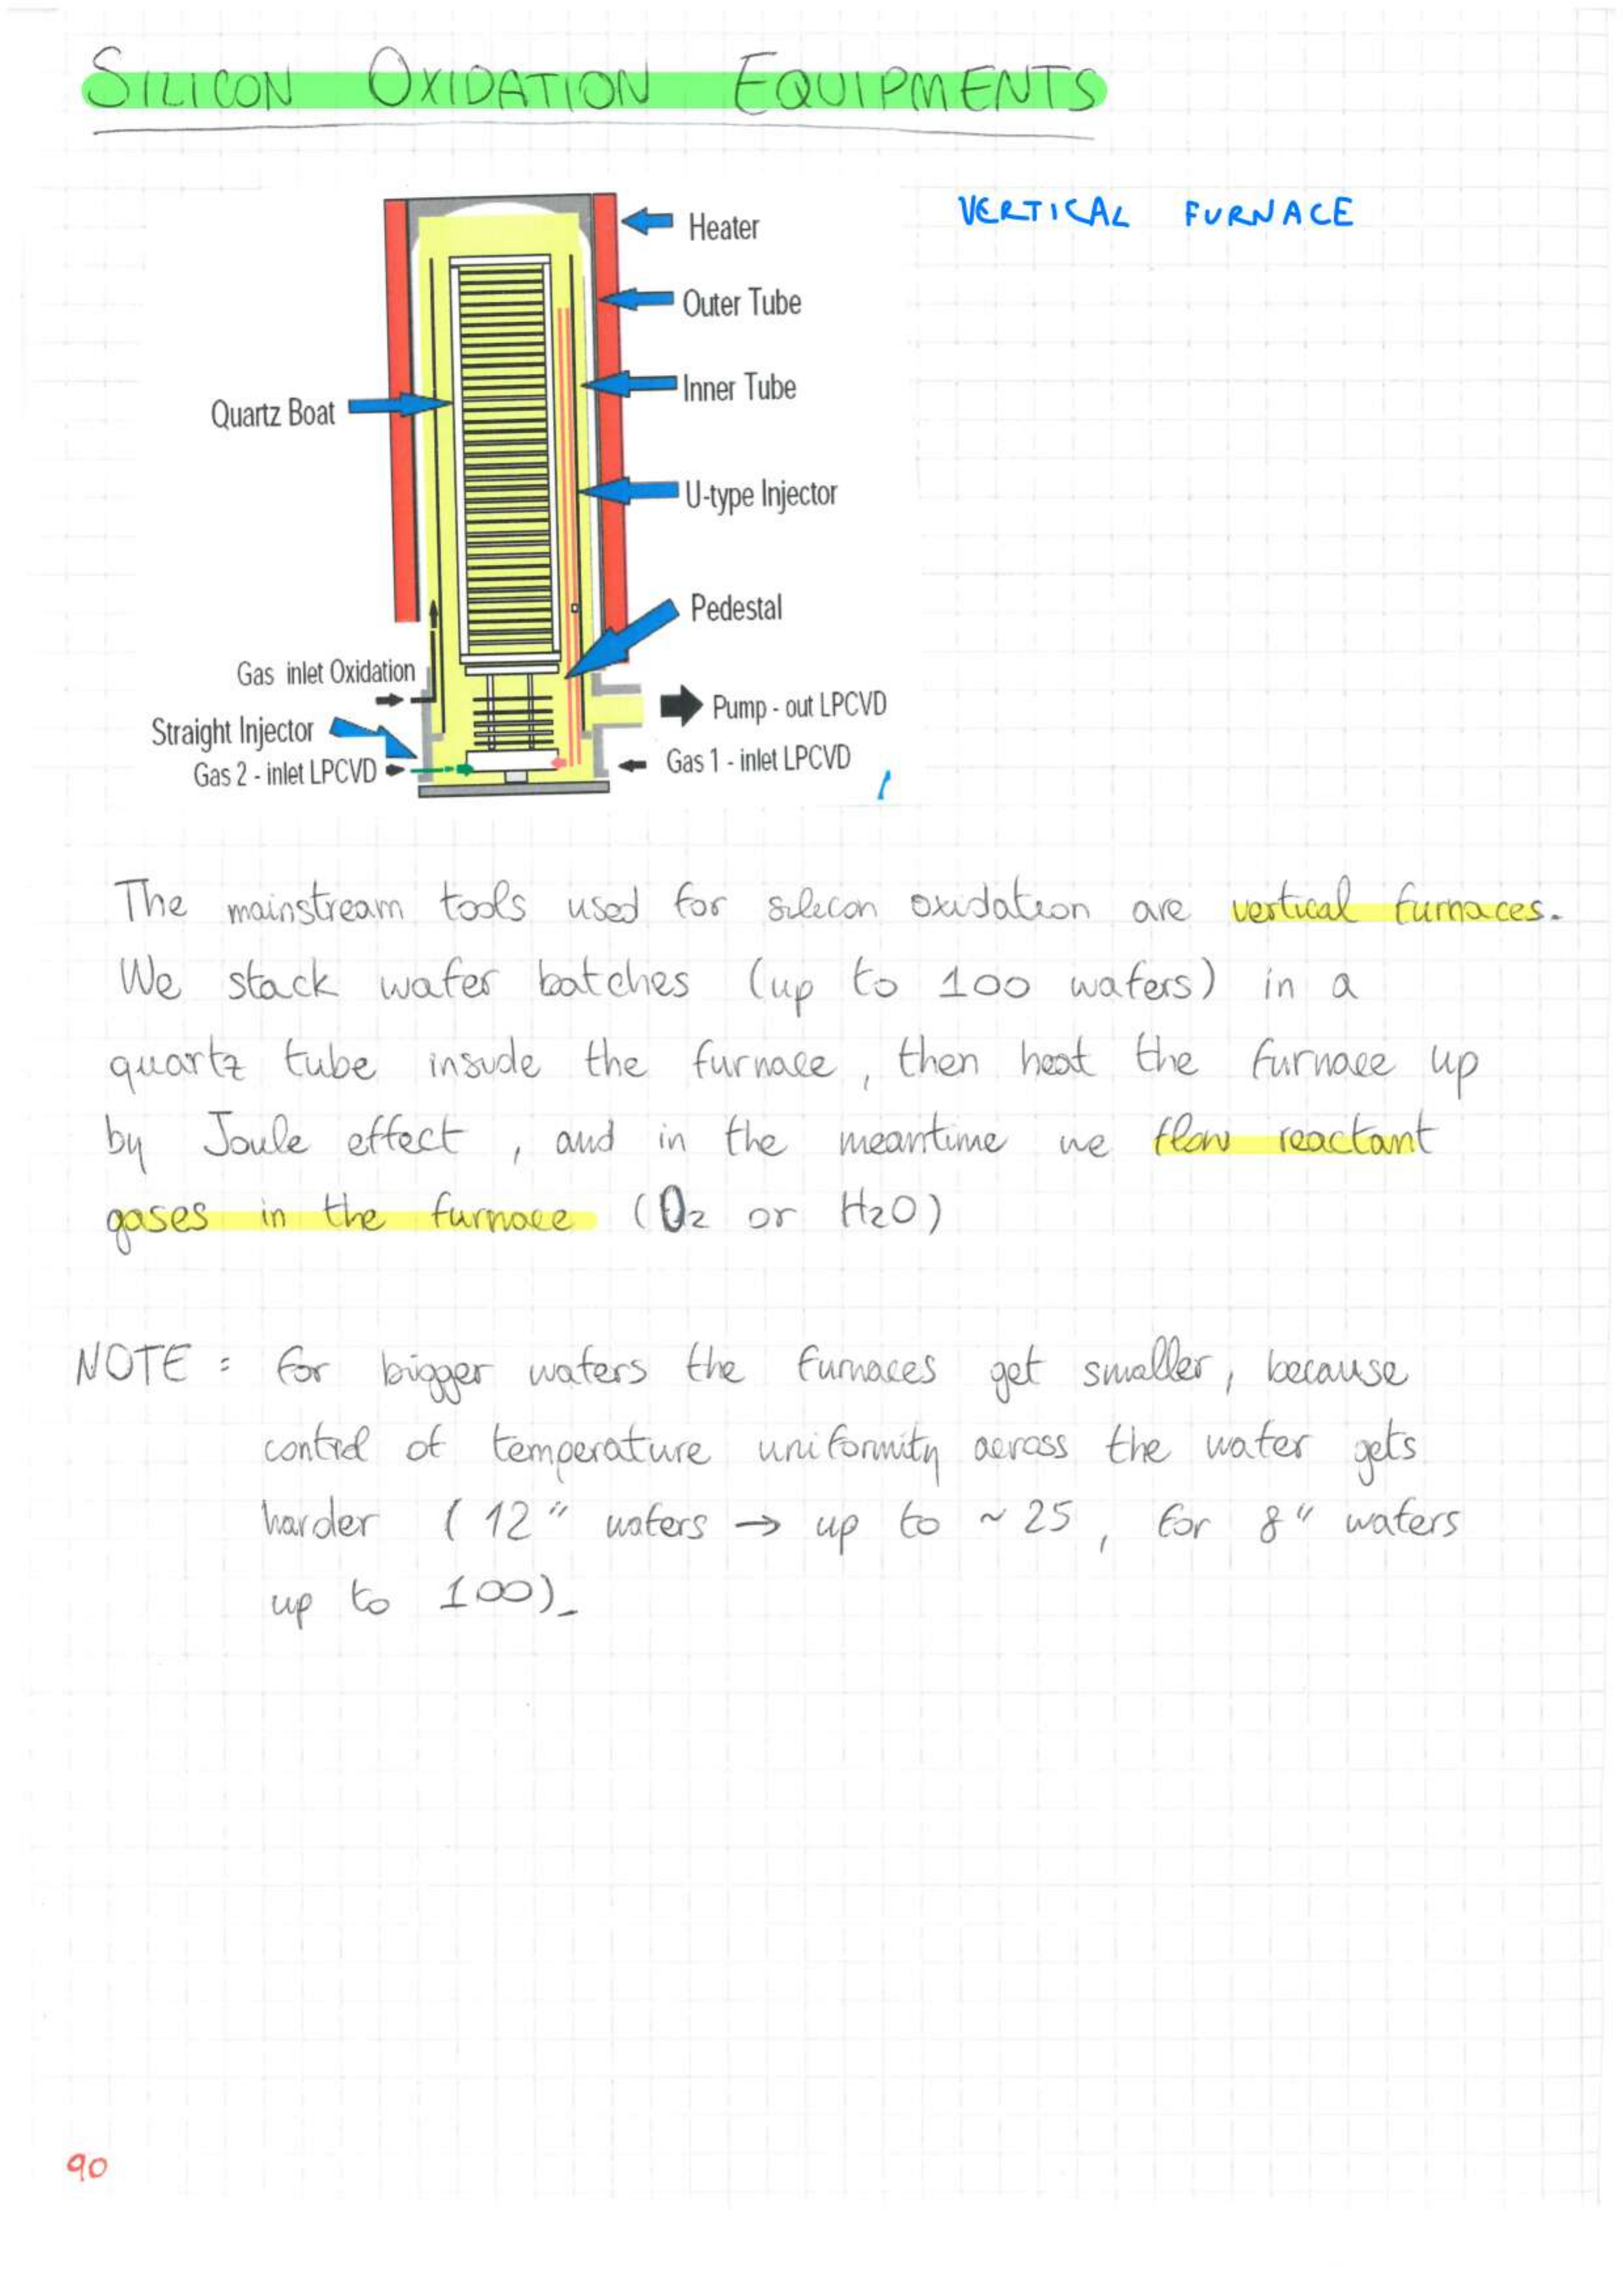 SILICON OXIDATION EQUIPMENTS
VERTICAL FURNACE
Heater
Outer Tube
Inner Tube
Quartz Boat
U-type Injector
Pedestal
Gas inlet Oxidation
Pump - out LPCVD
Straight Injector
Gas 1 - inlet LPCVD
Gas 2 - inlet LPCVD
The mainstream tools used for silicon oxidation are vertical furnaces.
We stack wafer batches (up to 100 wafers) in a
quartz tube inside the furnace, then heat the furnace up
by Joule effect, and in the meantime we flow reactant
gases in the furnace (O2 or H2O)
NOTE: for bigger wafers the furnaces get smaller, because
control of temperature uniformity across the wafer gets
harder (12" wafers → up to ~25, for 8" wafers
up to 100).
90